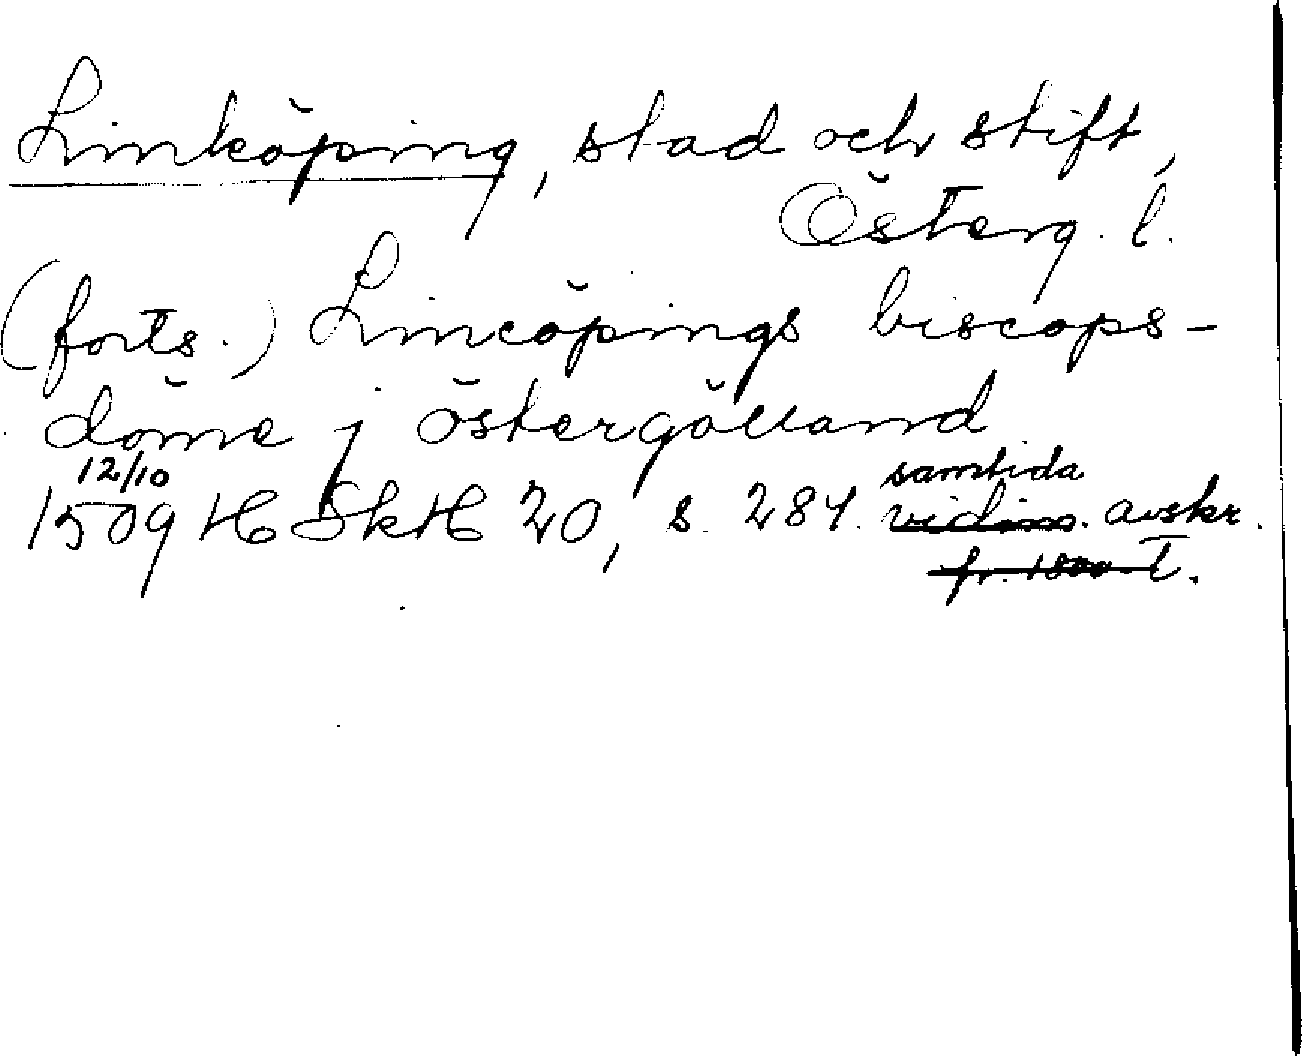 Linköping, stad och stift,
Österg. l.
(forts.) Lincöpings biscops-
döme j östergötland
12/10 samtida
1509 HSkH 20, s. 284. vidim. avskr.
fr. 1800-t.